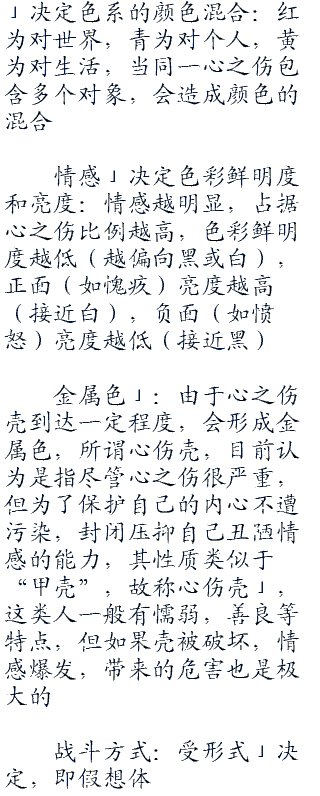 」决定色系的颜色混合：红
为对世界，青为对个人，黄
为对生活，当同一心之伤包
含多个对象，会造成颜色的
混合
情感」决定色彩鲜明度
和亮度：情感越明显，占据
心之伤比例越高，色彩鲜明
度越低（越偏向黑或白），
正面（如愧疚）亮度越高
（接近白），负面（如愤
怒）亮度越低（接近黑）
金属色」：由于心之伤
壳到达一定程度，会形成金
属色，所谓心伤壳，目前认
为是指尽管心之伤很严重，
但为了保护自己的内心不遭
污染，封闭压抑自己丑陋情
感的能力，其性质类似于
“甲壳”，故称心伤壳」，
这类人一般有懦弱，善良等
特点，但如果壳被破坏，情
感爆发，带来的危害也是极
大的
战斗方式：受形式」决
定，即假想体